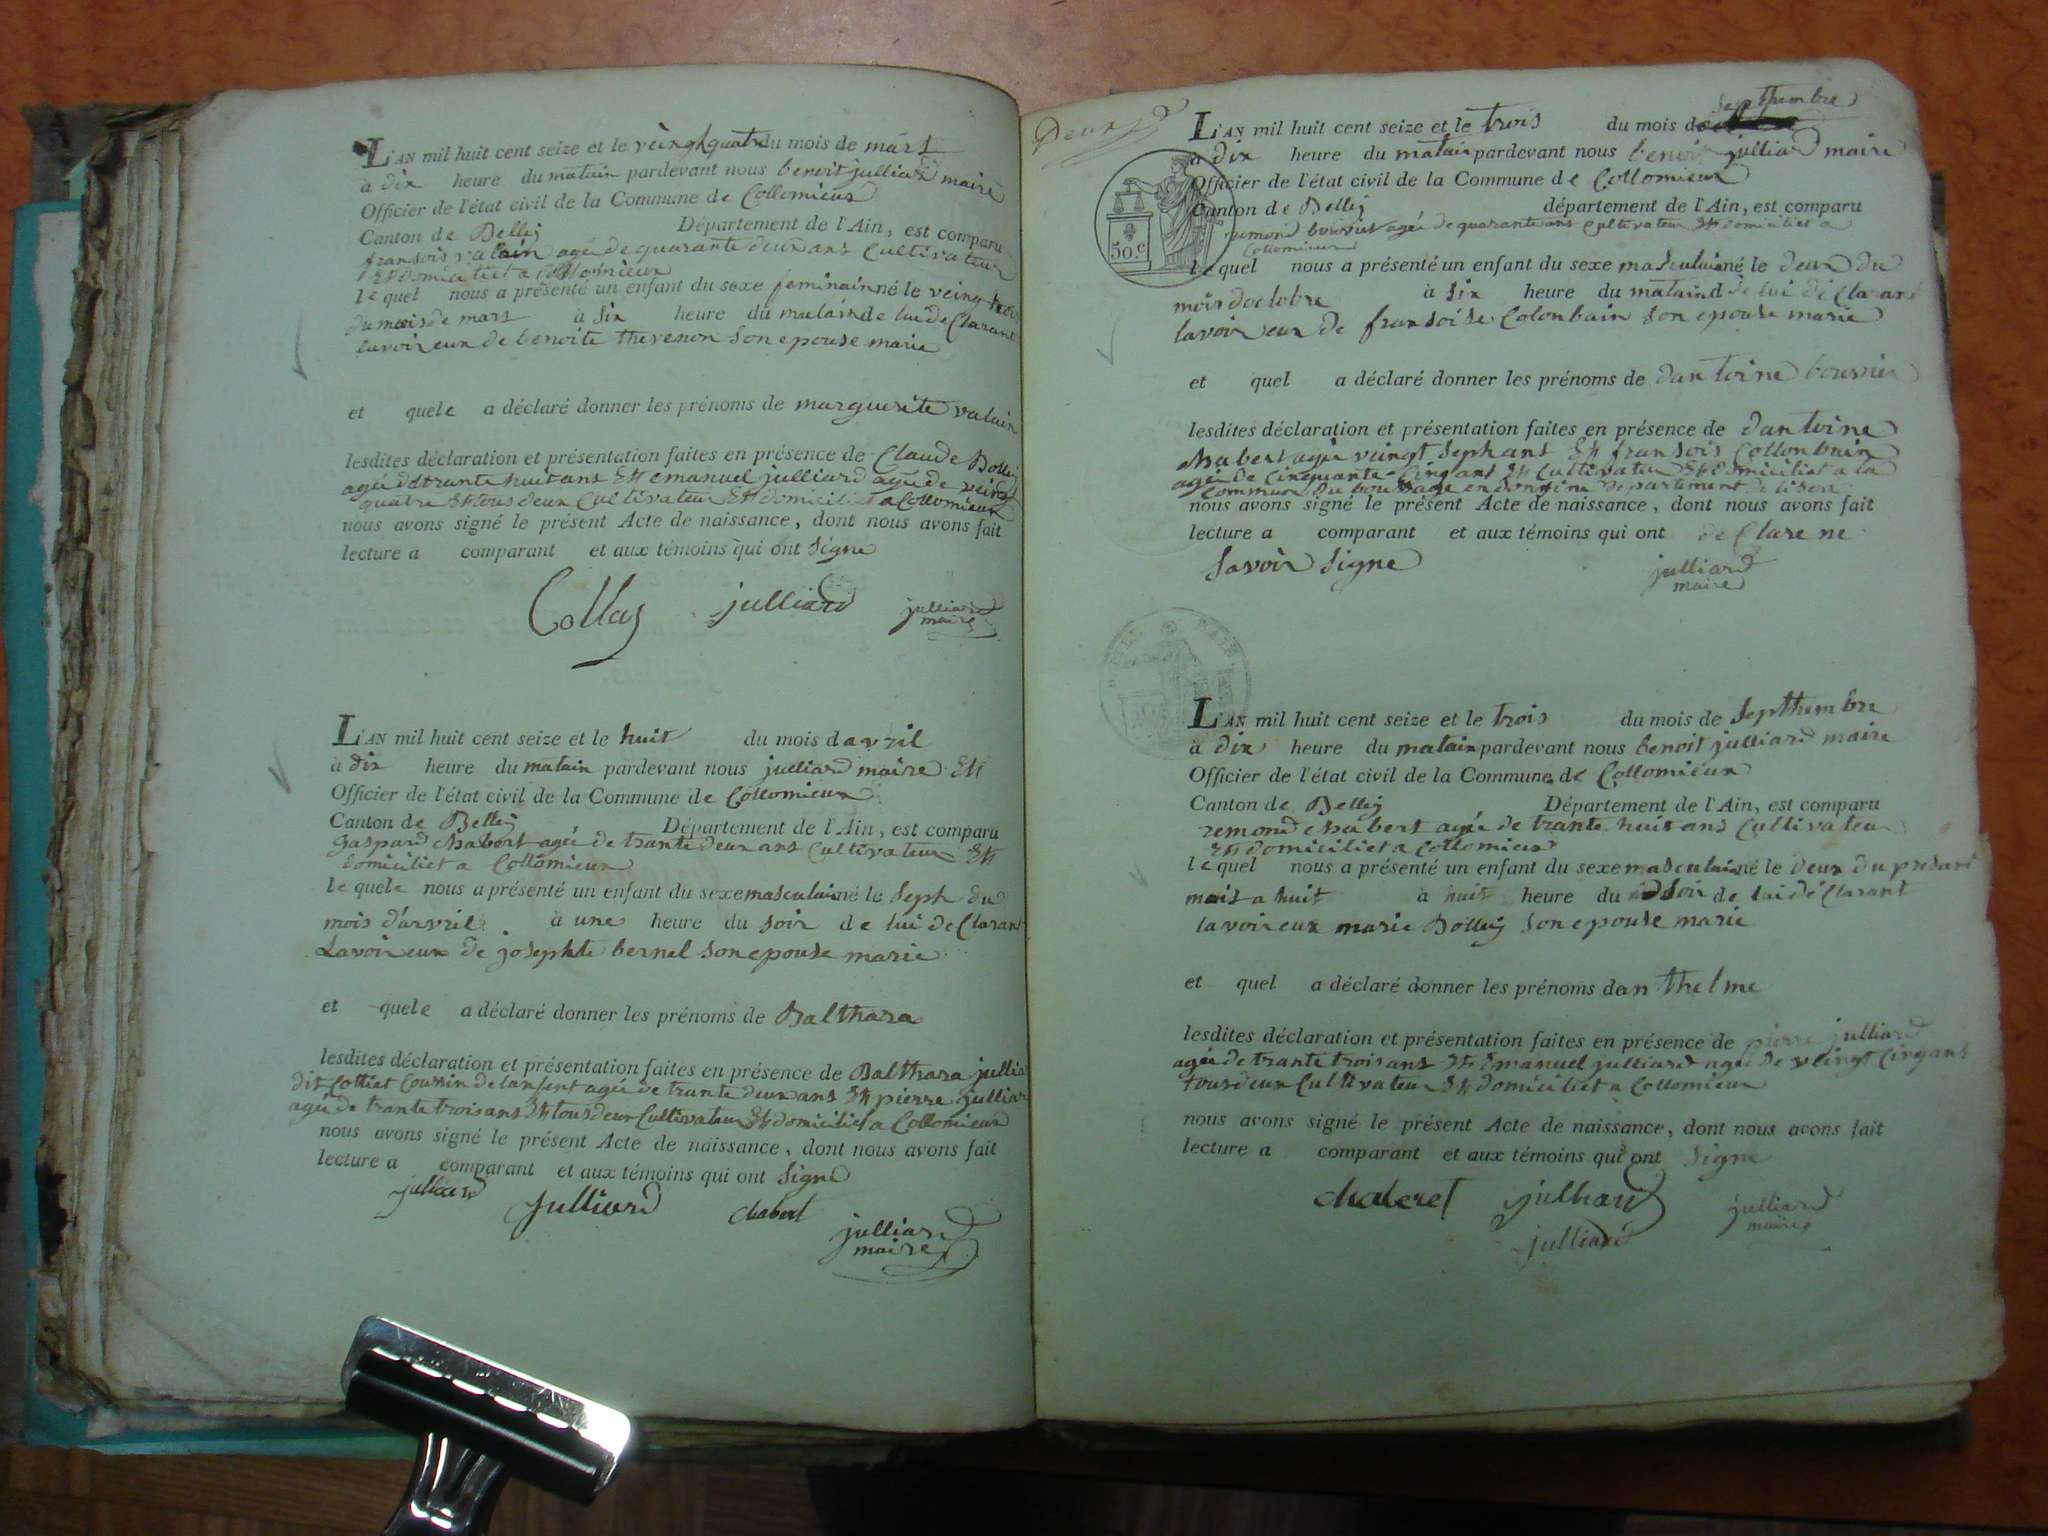 L'AN mil huit cent seize et le veingtquatre du mois de mars
à dix heure du matain pardevant nous benoit julliard maire
Officier de l'état civil de la Commune de Collomieux
Canton de Belley Département de l'Ain, est comparu
fransois valain agée de quarante deux ans Cultivateur
Ett domiciliet a Collomieux
lequel nous a présenté un enfant du sexe feminain né le veingt trois
du mois de mars à six heure du matain de lui de Clarant
lavoireux de benoite thevenon son epouse marie
et quele a déclaré donner les prénoms de marguerite valain
lesdites déclaration et présentation faites en présence de Claude Bolley
agée de trante huit ans Ett emanuel julliard agée de veingt
quatre Ett tous deux Cultivateur Ett domiciliet a Collomieux
nous avons signé le présent Acte de naissance, dont nous avons fait
lecture a comparant et aux témoins qui ont signe
julliard julliard
maire
L'AN mil huit cent seize et le huit du mois davril
à dix heure du matain pardevant nous julliard maire Ett
Officier de l'état civil de la Commune de Collomieux
Canton de Belley Département de l'Ain, est comparu
gaspard chabert agée de trante deux ans Cultivateur Ett
domiciliet a Collomieux
lequele nous a présenté un enfant du sexe masculain né le seph du
mois d'avril à une heure du soir de lui de Clarant
Lavoireux de josephte bernel son epouse marie
et quele a déclaré donner les prénoms de Balthara
lesdites déclaration et présentation faites en présence de Balthara julliar
dit Cottiet Coussin de lanfent agée de trante deux ans Ett pierre julliar
agée de trante trois ans Ett tous deux Cultivateur Ett domiciliet a Collomieux
nous avons signé le présent Acte de naissance, dont nous avons fait
lecture a comparant et aux témoins qui ont signe
julliard julliard chabert julliard
maire
Deux
septhembre
L'AN mil huit cent seize et le trois du mois de
à dix heure du matain pardevant nous benoit julliard maire
Officier de l'état civil de la Commune de Collomieux
Canton de Belley département de l'Ain, est comparu
rumond bouvier agée de quarante ans Cultivateur Ett domiciliet a
Collomieux
50 c
lequel nous a présenté un enfant du sexe masculain né le deux du
mois doctobre à six heure du matain d de lui de Clarant
lavoireux de fransoise Colonbain son epouse marie
et quel a déclaré donner les prénoms de dantoine bouvier
lesdites déclaration et présentation faites en présence de dantoine
chabert agée veingt seph ans Ett fransois Collonbain
agée de Cinquante Cinq ans Ett Cultivateur Ett domiciliet a la
Commune du departement de liser
nous avons signé le présent Acte de naissance, dont nous avons fait
lecture a comparant et aux témoins qui ont de Clare ne
savoir signe julliard
maire
L'AN mil huit cent seize et le trois du mois de septhembre
à dix heure du matain pardevant nous benoit julliard maire
Officier de l'état civil de la Commune de Collomieux
Canton de Belley Département de l'Ain, est comparu
remond chabert agée de trante huit ans Cultivateur
Ett domiciliet a Collomieux
lequel nous a présenté un enfant du sexe masculain né le deux du presant
mois a huit à huit heure du soir de lui dé Clarant
lavoireux marie Bolley son epouse marie
et quel a déclaré donner les prénoms dan thelme
lesdites déclaration et présentation faites en présence de pierre julliard
agée de trante trois ans Ett Emanuel julliard agée de veingt Cinq ans
tous deux Cultivateur Ett domiciliet a Collomieux
nous avons signé le présent Acte de naissance, dont nous avons fait
lecture a comparant et aux témoins qui ont signe
julliard julliard
julliard maire